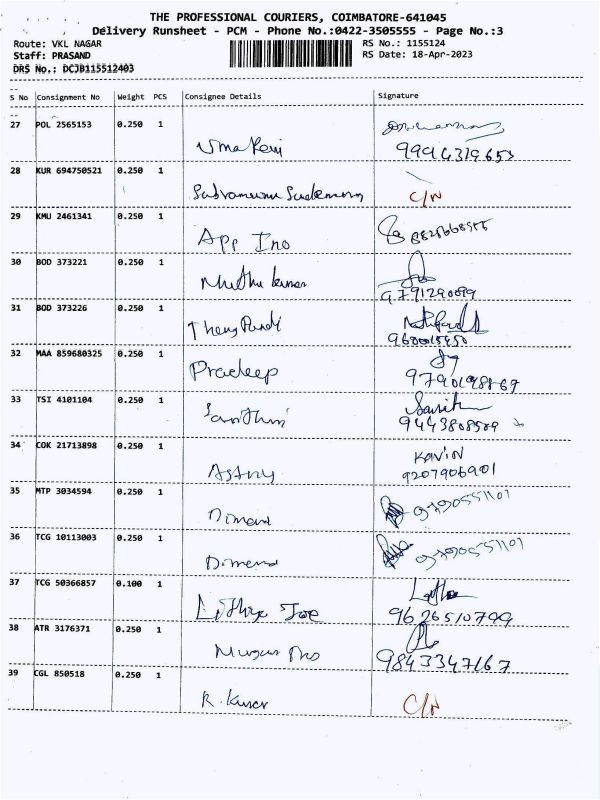 THE PROFESSIONAL COURIERS, COIMBATORE-641045
Delivery Runsheet - PCM - Phone No.:0422-3505555 - Page No.:3
Route: VKL NAGAR
RS No.: 1155124
Staff: PRASAND
RS Date: 18-Apr-2023
DRS No.: DCJB115512403
S No Consignment No Weight PCS Consignee Details Signature
27 POL 2565153 0.250 1 Uma Rani
28 KUR 694750521 0.250 1 C/N
29 KMU 2461341 0.250 1 App Ino
30 BOD 373221 0.250 1 Muthu kumar
31 BOD 373226 0.250 1
32 MAA 859680325 0.250 1 Pradeep
33 TSI 4101104 0.250 1
9443808509
34 COK 21713898 0.250 1 KAVIN
9207906901
35 MTP 3034594 0.250 1 Dimend 9790551101
36 TCG 10113003 0.250 1 Dimend 9790551101
37 TCG 50366857 0.100 1 Lithiya Joe
9626510799
38 ATR 3176371 0.250 1
9843347167
39 CGL 850518 0.250 1 R. Kumar C/N